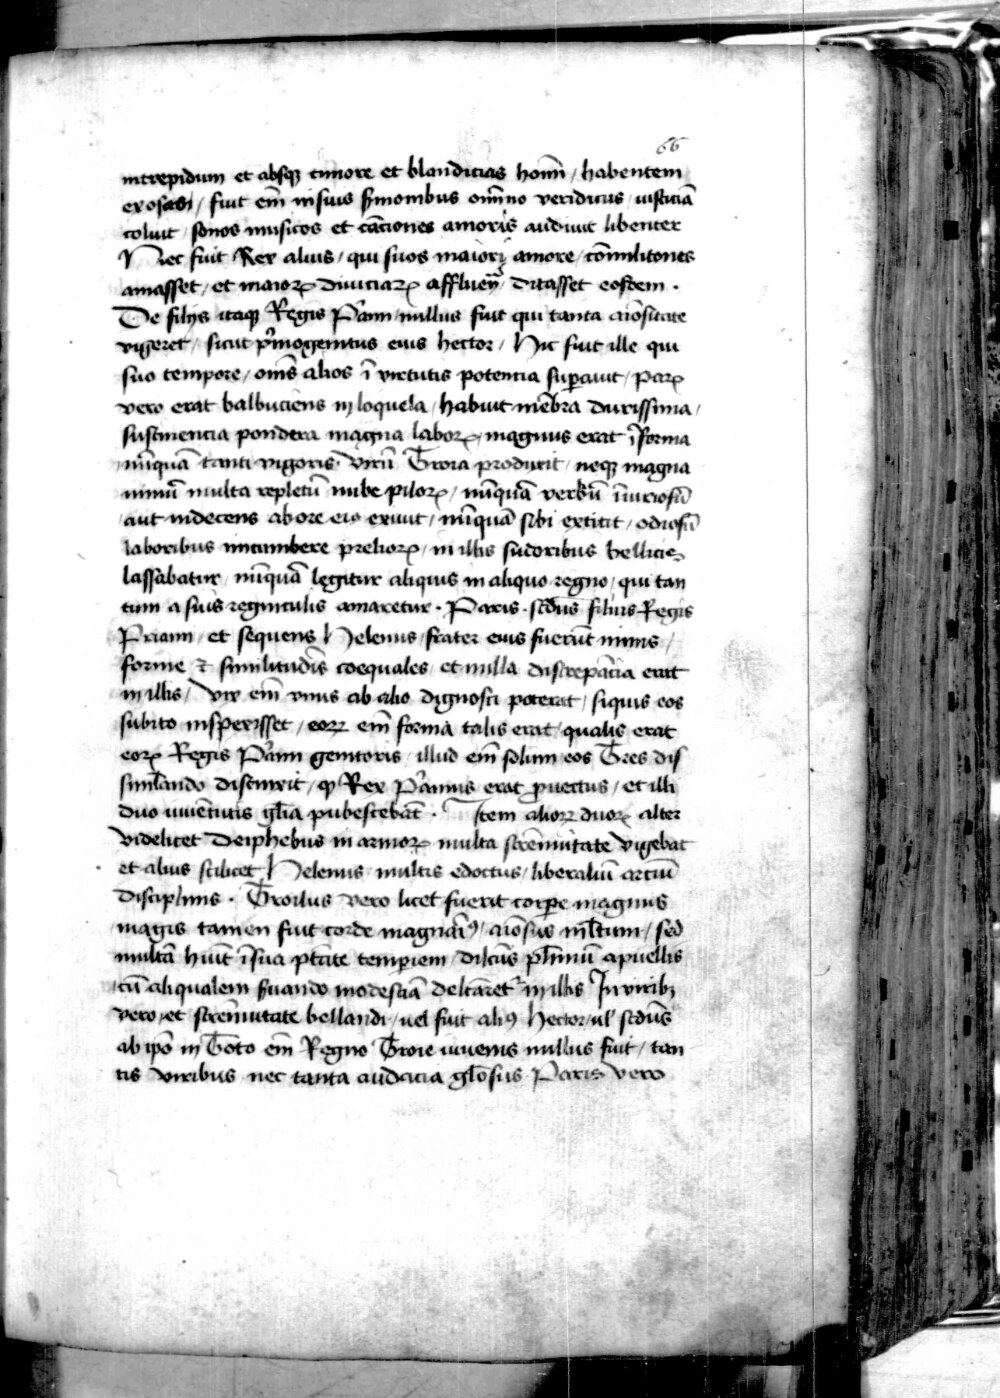 66
intrepidum et absqꝫ timore et blandicias homī / habentem
exosas / fuit em̄ in suis ẜmonibus om̄ino veridicus / iusticiā
coluit / sonos musicos et cāciones amoris audiuit libenter
Nec fuit Rex alius / qui suos maiori amore / cōmilitones
amasset / et maioꝝ diuiciaꝝ affluen / ditasset eosdem .
De filijs itaqꝫ Regis P̄ami nullus fuit qui tanta aīositate
vigeret / sicut p̄mogenitus eius hector / Hic fuit ille qui
suo tempore / om̄s alios ī virtutis potencia suꝑauit / Paꝝ
vero erat balbuciens in loquela / habuit mēbra durissima /
sustinencia pondera magna laboꝝ / magnus erat ī forma
nūquā tanti vigoris virū Troia produxit / neqꝫ magna
nimū multa repletū nube piloꝝ / nūquā verbū īiuriosū
aut indecens ab ore eiꝰ exiuit / nūquā sibi extitit / odiosū
laboribus incumbere prelioꝝ / in illis sudoribus bellicis
lassabatur / nūquā legitur aliquis in aliquo regno / qui tan
tum a suis regniculis amaretur . Paris . sc̄dus filius Regis
Priami / et sequens Helenus / frater eius fuerūt nimis /
forme ⁊ similitudīs coequales / et nulla discrepācia erat
in illis / Vix em̄ vnus ab alio dignosci poterat / siquis eos
subito inspexisset / eoꝝ em̄ forma talis erat / qualis erat
eoꝝ Regis P̄ami genitoris / illud em̄ solum eos Tres dis
simlando distinxit / ꝙ Rex P̄amus erat ꝓuectus / et illi
duo iuuētutis gl̄ia pubescebāt . Item alioꝝ duoꝝ alter
videlicet Deiphebus in armoꝝ multa strēnuitate vigebat
et alius scilicet Helenus / multis edoctus / liberaliū arciū
disciplinis . Troilus vero licet fuerit corꝑe magnus
magis tamen fuit corde magnaīꝰ / aīosus ml̄tum / sed
multā huit̄ ī sua ptāte temꝑiem / dilc̄us pl̄imū a puellis
cū aliqualem ẜuando modestiā delc̄aret in illis In viribꝫ
vero et strēnuitate bellandi / uel fuit aliꝰ Hector / ul̄ sc̄dus
ab ip̄o in Toto em̄ Regno Troie iuuenis nullus fuit / tan
tis viribus nec tanta audacia gl̄osus Paris vero